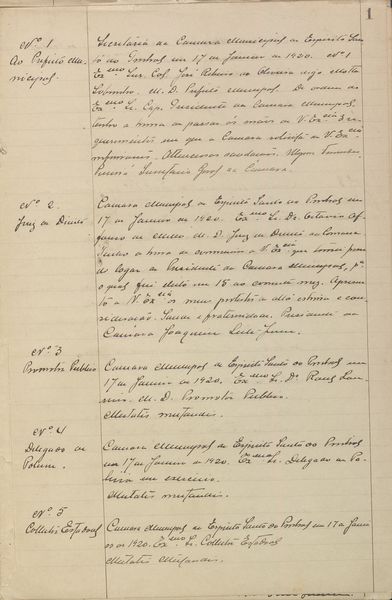 1
Nº 1
Ao Prefeito Mu-
nicipal.
Secretaria da Camara Municipal de Espirito San-
to do Pinhal em 17 de Janeiro de 1920. Nº 1
Exmo Snr. Cel. José Ribeiro de Oliveira Motta
Sobrinho. M. D. Prefeito Municipal. De ordem do
Exmo Sr. Cap. Presidente da Camara Municipal,
tenho a honra de passar ás mãos de V. Excia 3 re-
querimentos em que a Camara solicita de V. Excia
informações. Attenciosas saudações.
Secretario Geral da Camara.
Nº 2
Juiz de Direito
Camara Municipal de Espirito Santo do Pinhal em
17 de Janeiro de 1920. Exmo Sr. Dr.
de Mello M. D. Juiz de Direito da Comarca
Tenho a honra de communicar a V. Excia que tomei posse
do logar de Presidente da Camara Municipal, pª
o qual fui eleito em 15 do corrente mez. Apresen-
to a V. Excia os meus protestos de alta estima e con-
sideração. Saude e fraternidade. Presidente da
Camara Joaquim Leite
Nº 3
Promotor Publico
Camara Municipal de Espirito Santo do Pinhal em
17 de Janeiro de 1920. Exmo Sr. Dr. Raul
M. D. Promotor Publico.
Mutatis mutandis.
Nº 4
Delegado de
Policia.
Camara Municipal de Espirito Santo do Pinhal
em 17 de Janeiro de 1920. Exmo Sr. Delegado de Po-
licia em exercicio.
Mutatis mutandis.
Nº 5
Collector Estadual
Camara Municipal de Espirito Santo do Pinhal em 17 de Janei-
ro de 1920. Exmo Sr. Collector Estadual
Mutatis Mutandis.